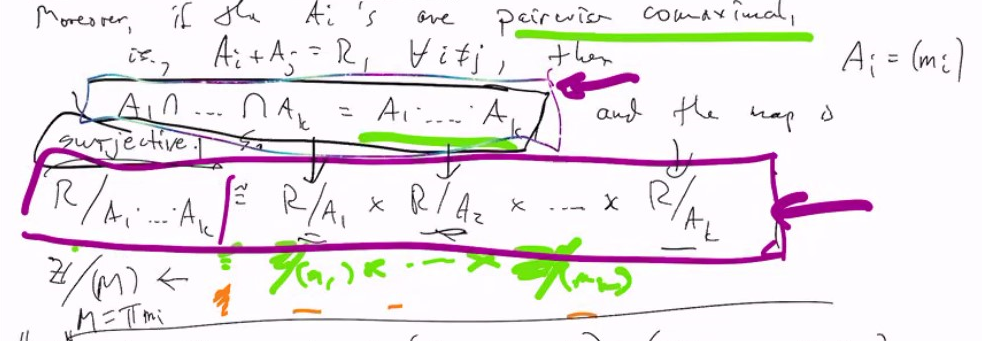 Moreover, if the Ai's are pairwise comaximal,
i.e., Ai + Aj = R, ∀ i ≠ j, then
Ai = (mi)
A1 ∩ ... ∩ Ak = A1 ..... Ak and the map is
surjective. So
R/A1 ... Ak ≅ R/A1 × R/A2 × .... × R/Ak
ℤ/(M) ← ≅ ℤ/(m1) × . ... × ℤ/(mk)
M = Πmi